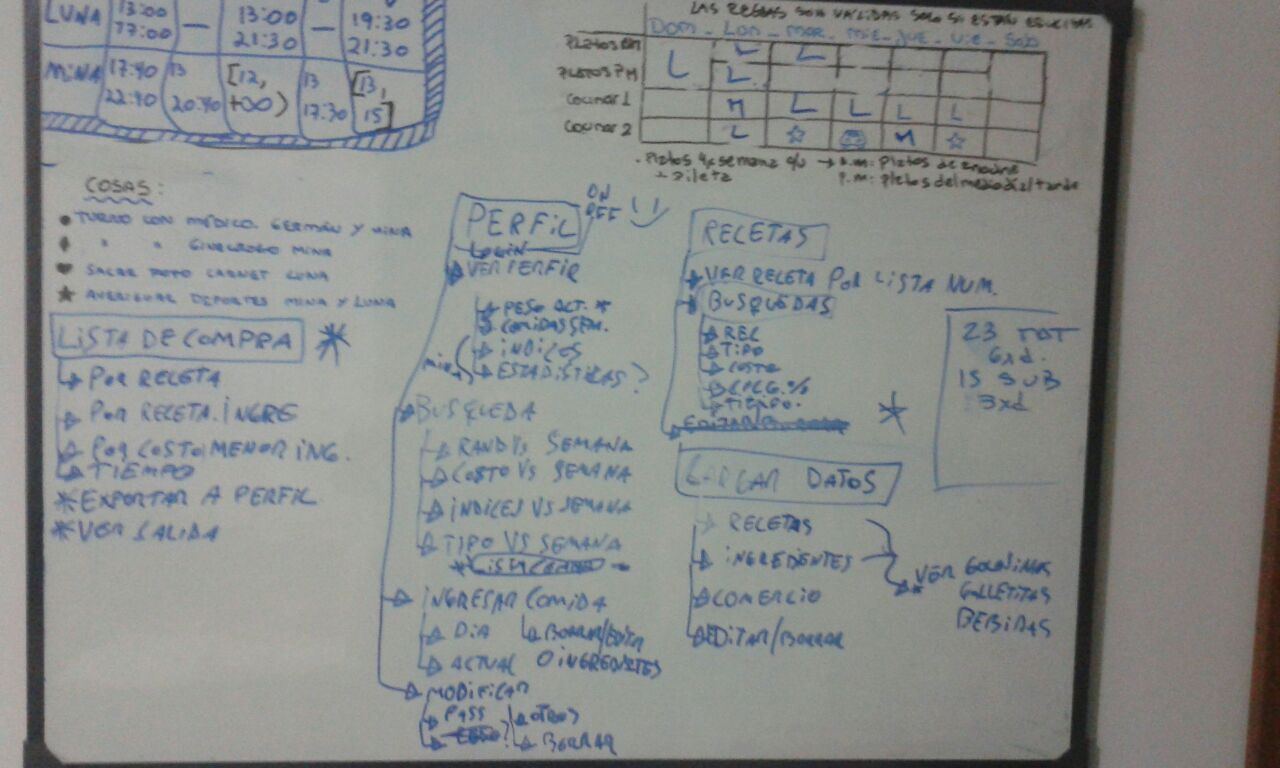 LUNA 13:00 17:00 — 13:00 21:30 — 19:30 21:30
MINA 17:40 22:40 13 20:40 [12, +∞) 13 17:30 [13, 15]
LAS REGLAS SON VALIDAS SOLO SI ESTAN ESCRITAS
DOM - LUN - MAR - MIE - JUE - VIE - SAB
PLATOS AM L L
PLATOS PM L L
COCINAR 1 M L L L L
COCINAR 2 L ☆ M ☆
. Platos 4x semana c/u → A.M: Platos de anoche
+ Pileta P.M: platos del mediodía/tarde
COSAS:
• TURNO CON MÉDICO GERMÁN Y MINA
" " GINECOLOGO MINA
♥ SACAR FOTO CARNET LUNA
★ AVERIGUAR DEPORTES MINA Y LUNA
LISTA DE COMPRA *
POR RECETA
POR RECETA. INGRE
POR COSTO MENOR ING.
TIEMPO
*EXPORTAR A PERFIL
*VER SALIDA
PERFIL ON
LOGIN
VER PERFIL
PESO ACT. *
COMIDAS SEM.
INDICES
ESTADISTICAS?
BUSQUEDA
RAND VS SEMANA
COSTO VS SEMANA
INDICES VS SEMANA
TIPO VS SEMANA
INGRESAR COMIDA
DIA BORRAR/EDITA
ACTUAL O INGREDIETES
MODIFICAR
PASS ? OTROS
BORRAR
RECETAS
VER RECETA POR LISTA NUM.
BUSQUEDAS
REC
TIPO
COSTO
TIEMPO.
*
CARGAR DATOS
RECETAS
INGREDENTES
COMERCIO
EDITAR/BORRAR
VER GOLOSINAS
GALLETITAS
BEBIDAS
23 TOT
6xd.
15 SUB
3xd